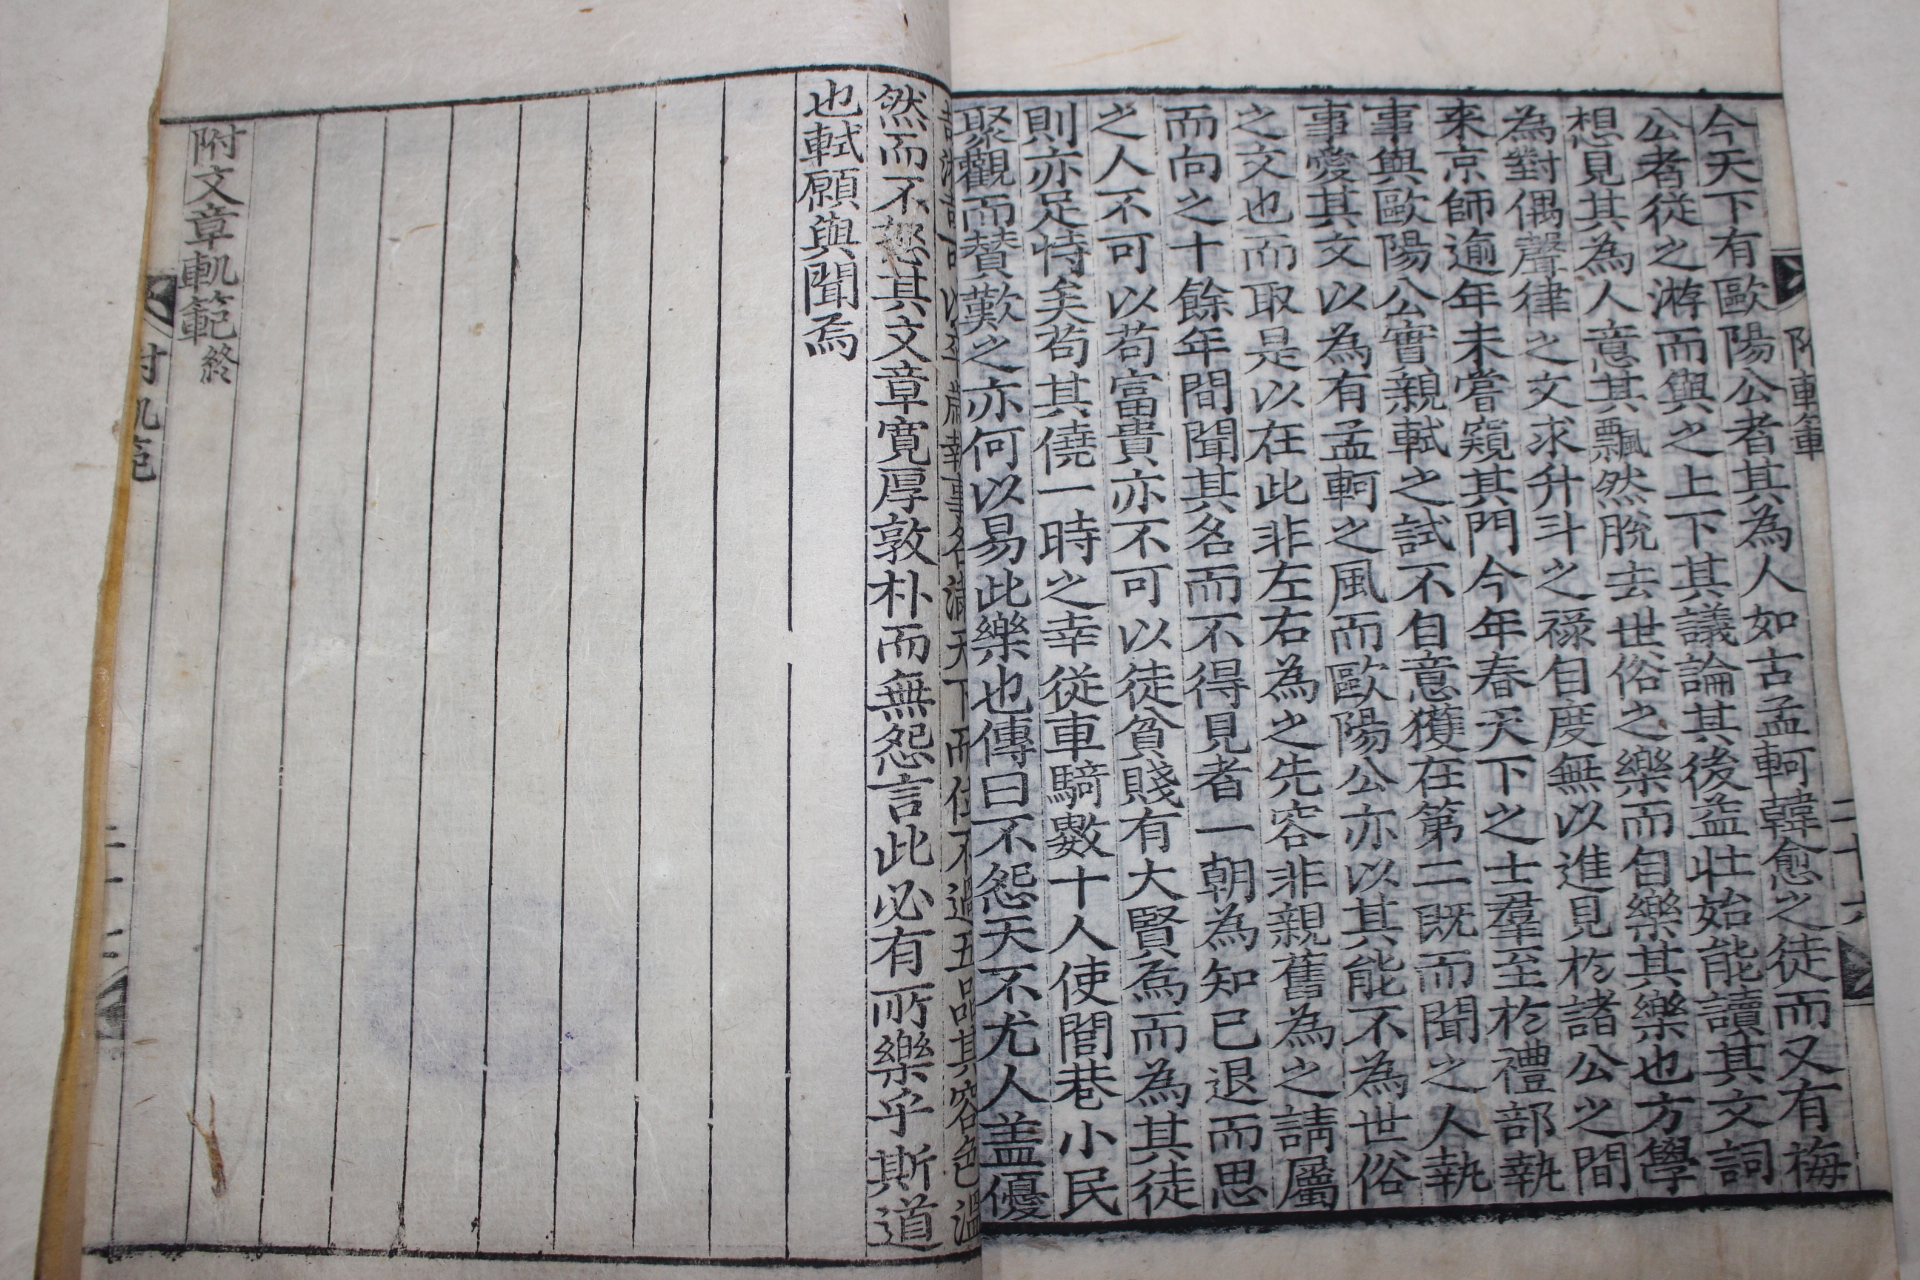 附軌範 二十六
今天下有歐陽公者其為人如古孟軻韓愈之徒而又有梅
公者從之游而與之上下其議論其後益壯始能讀其文詞
想見其為人意其飄然脫去世俗之樂而自樂其樂也方學
為對偶聲律之文求升斗之祿自度無以進見於諸公之間
来京師逾年未嘗窺其門今年春天下之士羣至於禮部執
事與歐陽公實親軾之試不自意獲在第二既而聞之人執
事愛其文以為有孟軻之風而歐陽公亦以其能不為世俗
之文也而取是以在此非左右為之先容非親舊為之請屬
而向之十餘年間聞其名而不得見者一朝為知已退而思
之人不可以苟富貴亦不可以徒貧賤有大賢焉而為其徒
則亦足恃矣苟其僥一時之幸從車騎數十人使閭巷小民
聚觀而賛歎之亦何以易此樂也傳曰不怨天不尤人盖優
哉游哉可以卒歲執事名滿天下而位不過五品其容色溫
然而不怒其文章寬厚敦朴而無怨言此必有所樂乎斯道
也軾願與聞焉
附文章軌範終